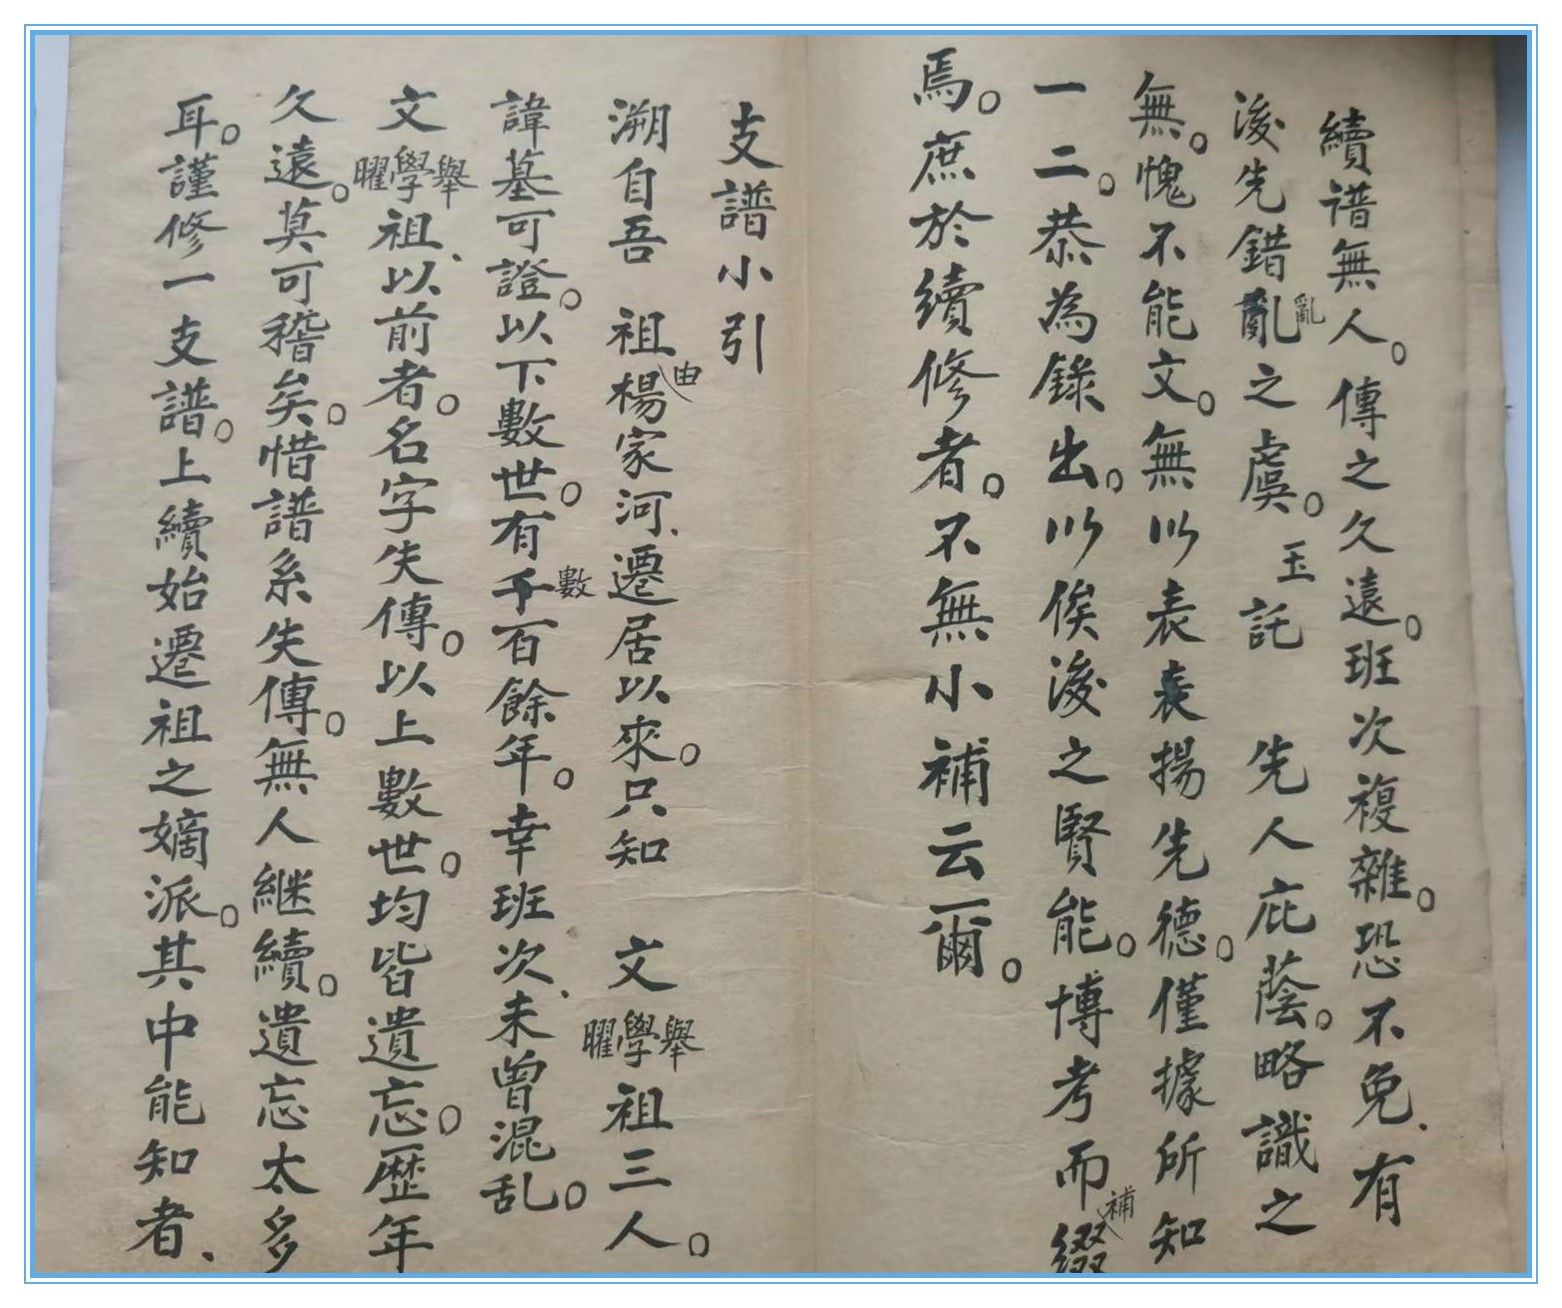 續譜無人。傳之久遠。班次複雜。恐不免、有
後先錯亂亂之虞。玉託 先人庇蔭。略識之
無。愧不能文。無以表表揚先德。僅據所知
一二。恭為錄出。以俟後之賢能。博考而補綴
焉。庶於續修者。不無小補云爾。
支譜小引
溯自吾 祖由楊家河、遷居以來。只知 文舉學曜祖三人。
諱墓可證。以下數世。有千數百餘年。幸班次、未曾混乱。
文舉學曜祖、以前者。名字失傳。以上數世。均皆遺忘。歷年
久遠。莫可稽矣。惜譜系失傳。無人継續。遺忘太多
耳。謹修一支譜。上續始遷祖之嫡派。其中能知者、